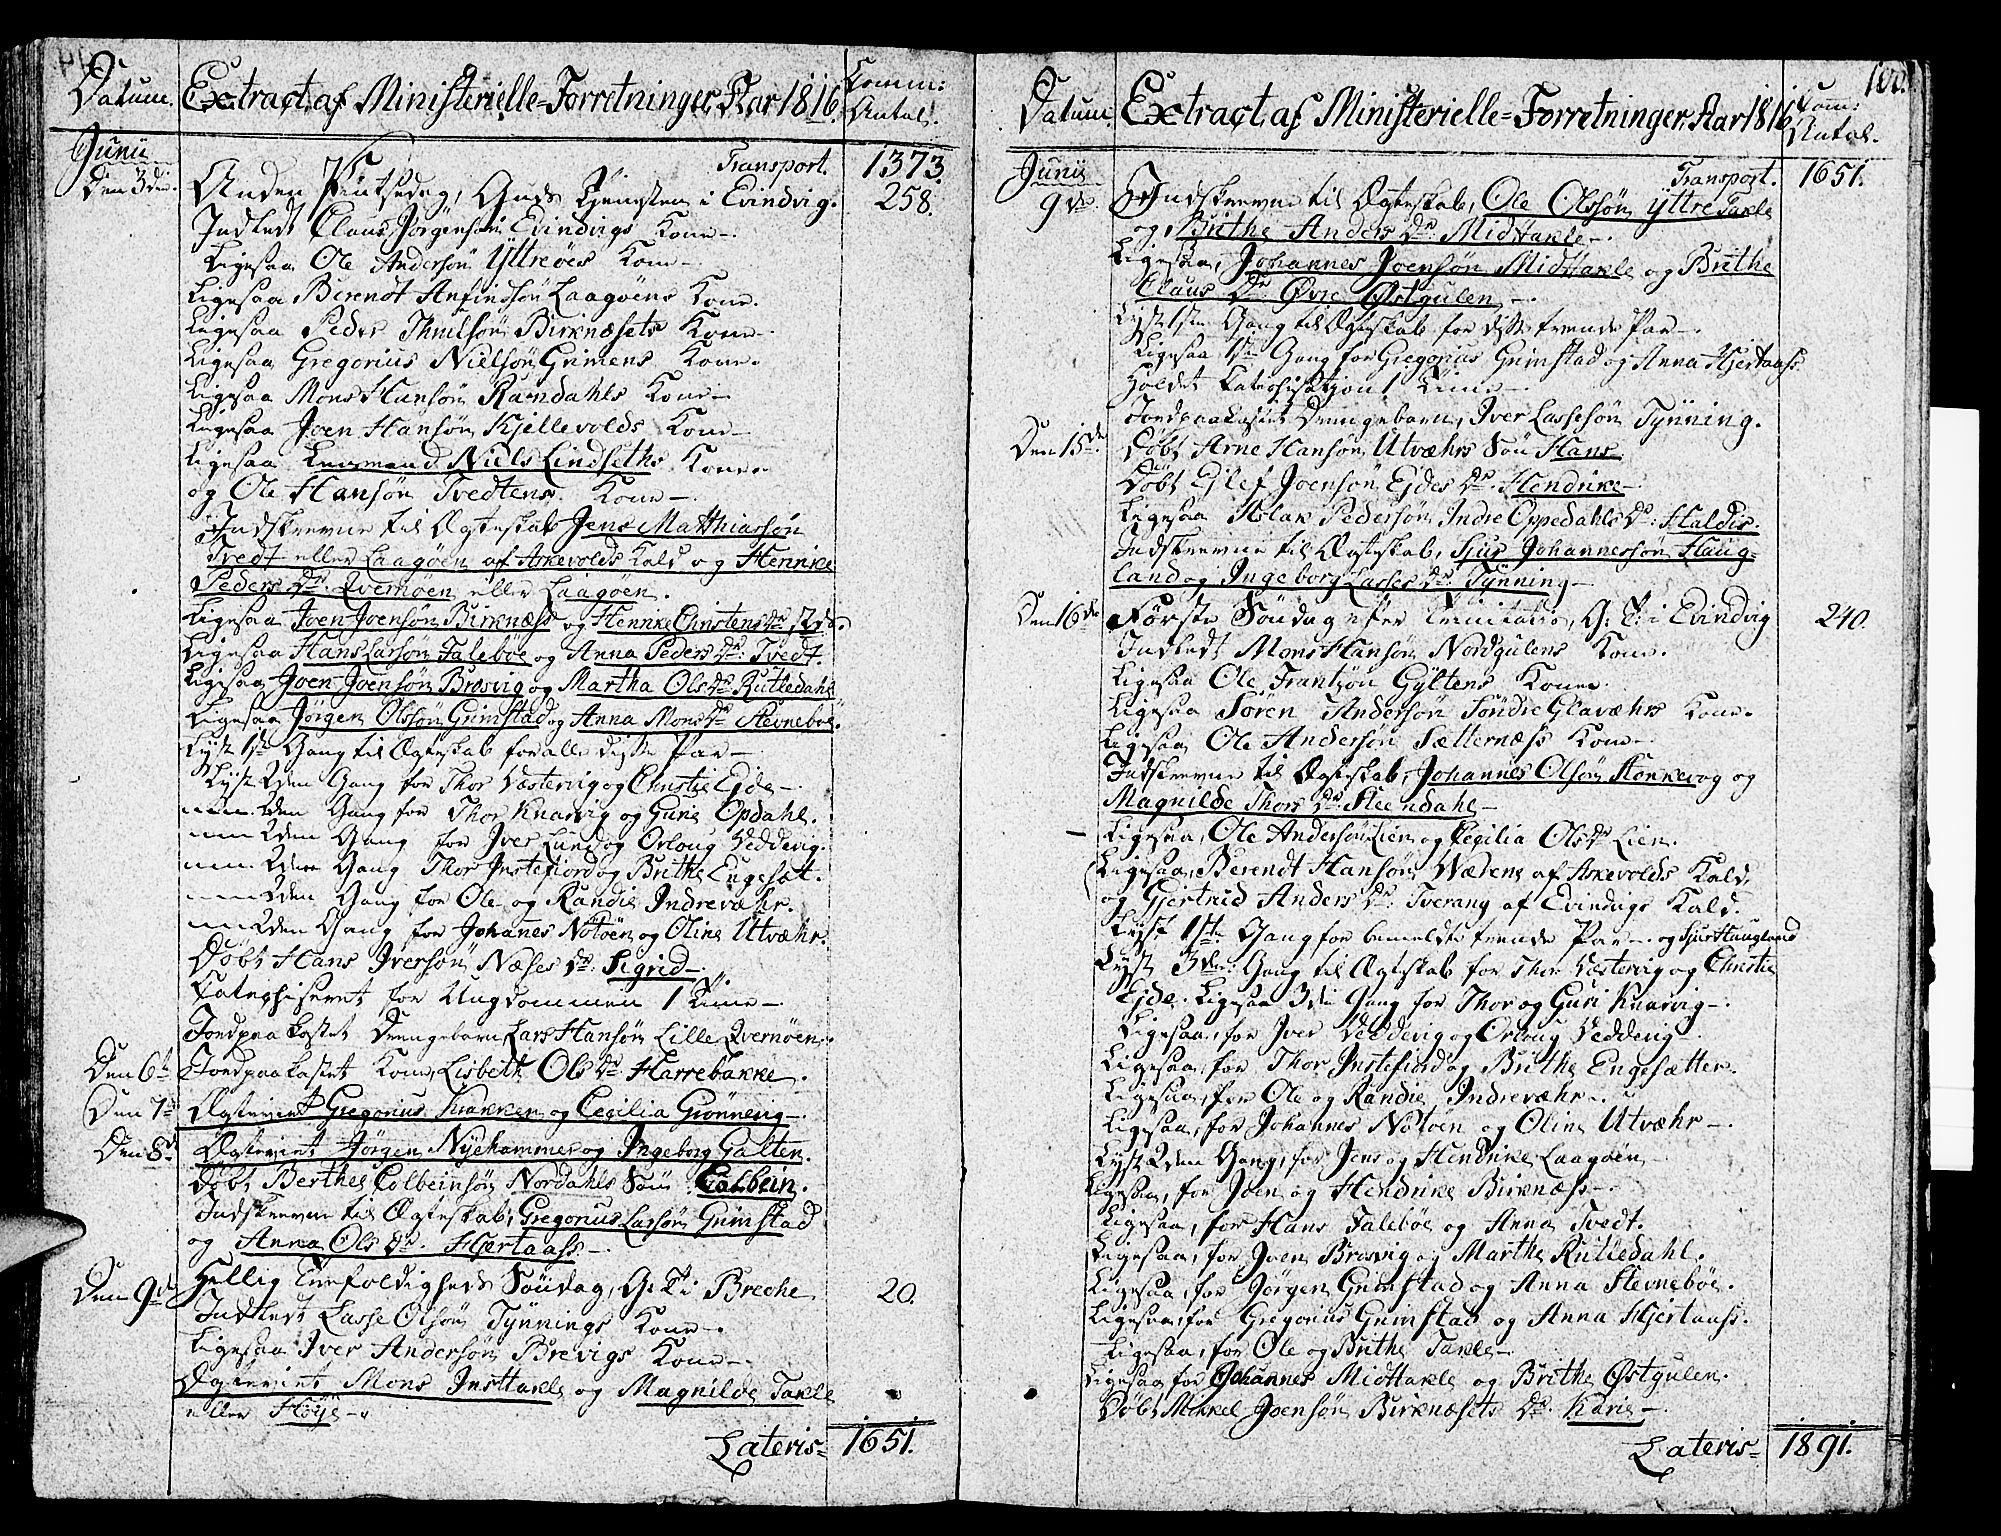 Datum. Extract af Ministerielle=Forretninger Aar 1816. Comm: Antal.
Junii Transport. 1373.
Den 3die. Anden Pintsedag, Guds Tjenesten i Evindvig. 258.
Indledt Claus Jørgensøn Evindvigs Kone.
Ligesaa Ole Andersøn Yttreøes Kone.
Ligesaa Berendt Anfindsøn Laagøens Kone.
Ligesaa Peder Birknæsets Kone.
Ligesaa Gregorius Nielsøn Grimens Kone.
Ligesaa Mons Hansøn Ramdahls Kone.
Ligesaa Joen Hansøn Kjellevolds Kone.
Ligesaa Niels Lindseths Kone.
og Ole Hansøn Tvedtens Kone.
Indskrevne til Ægteskab Jens Matthiassøn
Tvedt eller Laagøen af Askevolds Kald og Henrike
Peders Dr. Qvernøen eller Laagøen.
Ligesaa Joen Joensøn Birknæss og Henrike Christens Dr.
Ligesaa Hans Larsøn Faleböe og Anna Peders Dr. Tvedt.
Ligesaa Joen Joensøn Brosvig og Martha Ols Dr. Rutledahl
Ligesaa Jörgen Olssøn Grimstad og Anna Mons Dr. Stevneboe.
Lyst 1ste Gang til Ægteskab for alle disse Par.
Lyst 2den Gang for Thor Væstervig og Christie Ejde.
2den Gang for Thor Knarvig og Guri Opdahl.
2den Gang for Iver Lund og Orloug Veddevig.
2den Gang Thor Instefiord og Brithe Engesæt.
2den Gang for Ole og Randie Indrevæhr.
2den Gang for Johanes Nötöen og Oline Utvæhr.
Döbt Hans Iversøn Næses Dr. Sigrid.
Catechiseret for Ungdommen 1 Time.
Jordpaakastet Drengebarn Lars Hansøn Lille Qvernøen.
Den 6te Jordpaakastet Kone, Lisbeth Ols Dr. Harrebakke.
Den 7de Ægteviet Gregorius Krakken og Cecilia Grönnevig.
Den 8de Ægteviet Jörgen Nyehammer og Ingeborg Galten.
Döbt Berthel Colbeinsøn Nordahls Søn Colbein.
Indskrevne til Ægteskab, Gregorius Larsøn Grimstad
og Anna Ols Dr. Hjertaass.
Den 9de Hellig Trefoldigheds Söndag, G. T. i Breche 20.
Indledt Lasse Olsøn Tynnings Kone.
Ligesaa Iver Andersøn Brevigs Kone.
Ægteviet Mons Insttakle og Magnilde Takle
eller Höye.
Lateris= 1651.
100.
Datum. Extract af Ministerielle=Forretninger, Aar 1816. Com: Antal.
Junii Transport. 1651.
9de. Indskrevne til Ægteskab, Ole Olssøn Yttre Takle
og Brithe Anders Dr. Midttakle.
Ligesaa, Johannes Joensøn Midttakle og Brithe
Claus Dr. Øvre Østgulen.
Lyst 1ste Gang til Ægteskab for disse tvende Par.
Ligesaa 1ste Gang for Gregorius Grimstad og Anna Hjertaass.
Holdet Catechisation 1 Time.
Jordpaakastet Drengebarn, Iver Lassesøn Tynning.
Den 15de. Döbt Arne Hansøn Utvæhrs Søn Hans.
Döbt Ejlef Joensøn Ejdes Dr. Hendrike.
Ligesaa Aslak Pedersøn Indre Oppedahls Dr: Haldis.
Indskrevne til Ægteskab, Sjur Johannessøn Haug=
land og Ingeborg Lasses Dr. Tynning.
Den 16de Første Söndag efter Trinitatis, G: T: i Evindvig 240.
Indledt Mons Hansøn Nordgulens Kone.
Ligesaa Ole Frantzøn Gyltens Kone.
Ligesaa Søren Andersøn Søndre Glavæhrs Kone.
Ligesaa Ole Andersøn Sætternæss Kone.
Indskrevne til Ægteskab, Johannes Olsøn Storkevog og
Magnilde Thors Dr. Steendahl.
Ligesaa, Ole Andersøn Lien og Cecilia Ols Dr. Lien.
Ligesaa, Berendt Hansøn Vædene af Askevolds Kald,
og Gjertrud Anders Dr. Tverang af Evindvigs Kald.
Lyst 1ste Gang for bemeldte trende Par og Sjur Haugland
Lyst 3die Gang til Ægteskab for Thor Væstervig og Christie
Ejde. Ligesaa 3die Gang for Thor og Guri Knarvig.
Ligesaa, for Iver Veddevig og Orloug Veddevig.
Ligesaa, for Thor Instefiord og Brithe Engesætter.
Ligesaa, for Ole og Randie Indrevæhr.
Ligesaa, for Johannes Nötöen og Oline Utvæhr.
Lyst 2den Gang, for Jens og Hendrike Laagøen.
Ligesaa, for Joen og Hendrike Birknæss.
Ligesaa, for Hans Faleböe og Anna Tvedt.
Ligesaa, for Joen Brosvig og Marthe Rutledahl.
Ligesaa, for Jørgen Grimstad og Anna Stevneböe.
Ligesaa, for Gregorius Grimstad og Anna Hjertaass.
Ligesaa, for Ole og Brithe Takle.
Ligesaa for Johannes Midttakle og Brithe Østgulen.
Döbt Mikkel Joensøn Birknæsets Dr. Karie.
Lateris= 1891.